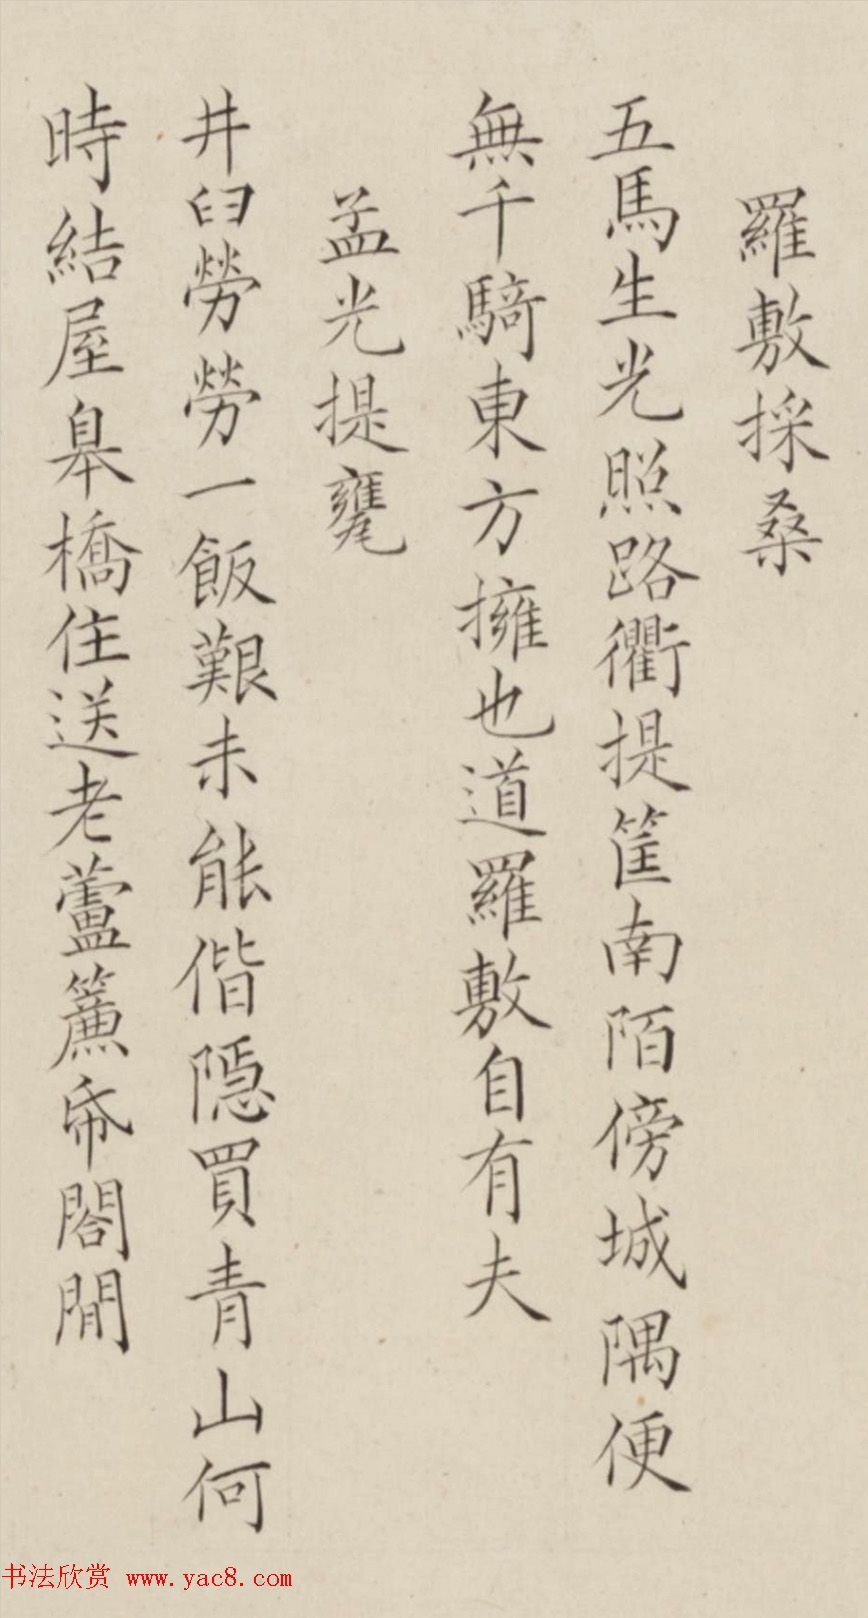 羅敷採桑
五馬生光照路衢提筐南陌傍城隅便
無千騎東方擁也道羅敷自有夫
孟光提甕
井臼勞勞一飯艱未能偕隠買青山何
時結屋皐橋住送老蘆簾帋閣閒
书法欣赏 www.yac8.com